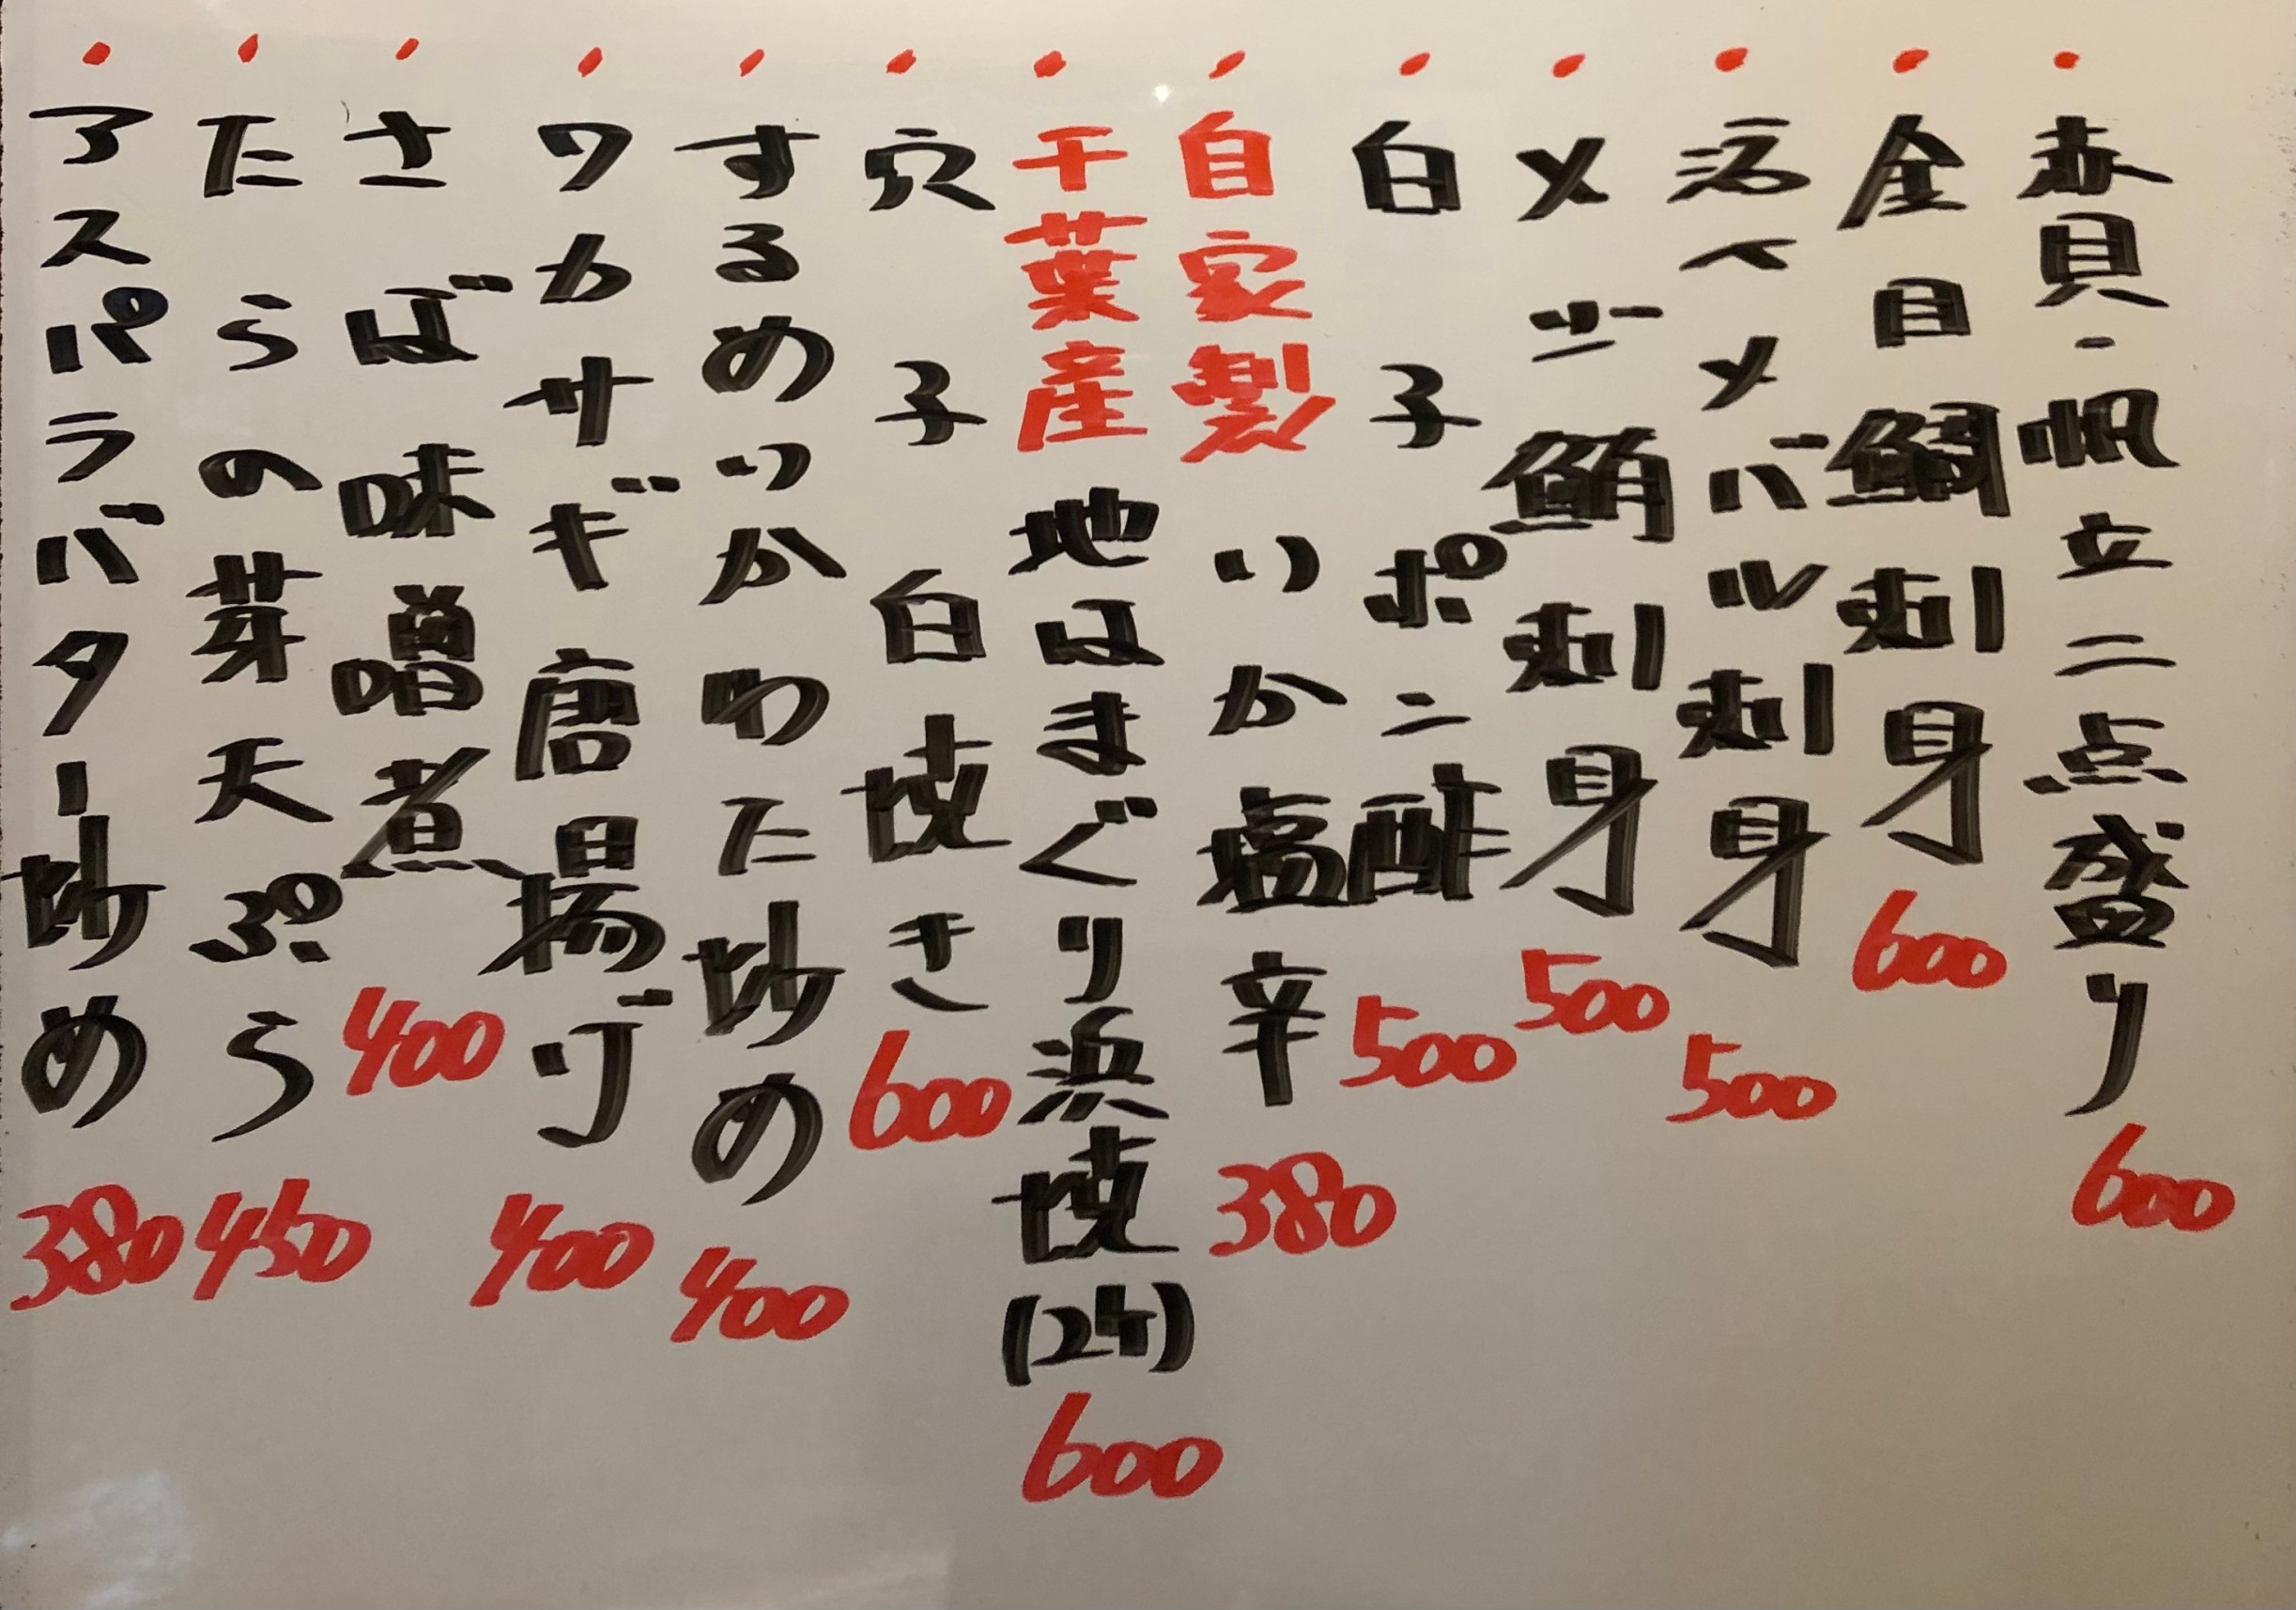 ・赤貝・帆立二点盛り 600
・金目鯛刺身 600
・活〆メバル刺身 500
・メジ鮪刺身 500
・白子ポン酢 500
・自家製いか塩辛 380
・千葉産地はまぐり浜焼(2ケ) 600
・穴子白焼き 600
・するめいかわた炒め 400
・ワカサギ唐揚げ 400
・さば味噌煮 400
・たらの芽天ぷら 450
・アスパラバター炒め 380